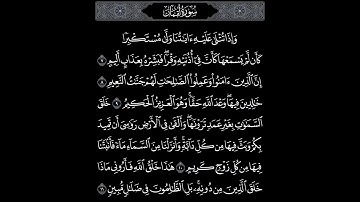 سورة لقمان
وَإِذَا تُتْلَىٰ عَلَيْهِ ءَايَـٰتُنَا وَلَّىٰ مُسْتَكْبِرًا
كَأَن لَّمْ يَسْمَعْهَا كَأَنَّ فِىٓ أُذُنَيْهِ وَقْرًا ۖ فَبَشِّرْهُ بِعَذَابٍ أَلِيمٍ ٧
إِنَّ ٱلَّذِينَ ءَامَنُوا۟ وَعَمِلُوا۟ ٱلصَّـٰلِحَـٰتِ لَهُمْ جَنَّـٰتُ ٱلنَّعِيمِ ٨
خَـٰلِدِينَ فِيهَا ۖ وَعْدَ ٱللَّهِ حَقًّا ۚ وَهُوَ ٱلْعَزِيزُ ٱلْحَكِيمُ ٩ خَلَقَ
ٱلسَّمَـٰوَٰتِ بِغَيْرِ عَمَدٍ تَرَوْنَهَا ۖ وَأَلْقَىٰ فِى ٱلْأَرْضِ رَوَٰسِىَ أَن تَمِيدَ
بِكُمْ وَبَثَّ فِيهَا مِن كُلِّ دَآبَّةٍ ۚ وَأَنزَلْنَا مِنَ ٱلسَّمَآءِ مَآءً فَأَنۢبَتْنَا
فِيهَا مِن كُلِّ زَوْجٍ كَرِيمٍ ١٠ هَـٰذَا خَلْقُ ٱللَّهِ فَأَرُونِى مَاذَا
خَلَقَ ٱلَّذِينَ مِن دُونِهِۦ ۚ بَلِ ٱلظَّـٰلِمُونَ فِى ضَلَـٰلٍ مُّبِينٍ ١١